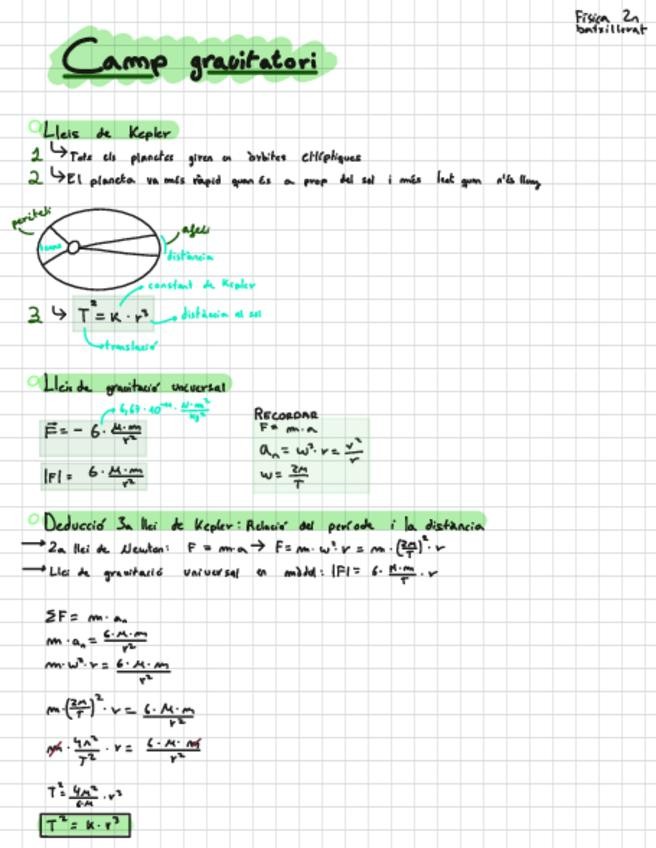 Física 2n
batxillerat
Camp gravitatori
Lleis de Kepler
1 ↳ Tots els planetes giren en òrbites el·líptiques
2 ↳ El planeta va més ràpid quan és a prop del sol i més lent quan n'és lluny
periheli
afeli
distància
constant de Kepler
3 ↳ T² = K · r³
distància al sol
translació
Lleis de gravitació universal
6,67 · 10⁻¹¹ · N·m²/kg²
F = - G · M·m/r²
|F| = G · M·m/r²
RECORDAR
F = m·a
aₙ = w² · r = v²/r
w = 2π/T
Deducció 3a llei de Kepler: Relació del període i la distància
→ 2a llei de Newton: F = m·a → F = m · w² · r = m · (2π/T)² · r
→ Llei de gravitació universal en mòdul: |F| = G · M·m/T · r
ΣF = m · aₙ
m · aₙ = G·M·m/r²
m · w² · r = G·M·m/r²
m · (2π/T)² · r = G·M·m/r²
m · 4π²/T² · r = G·M·m/r²
T² = 4π²/G·M · r³
T² = K · r³